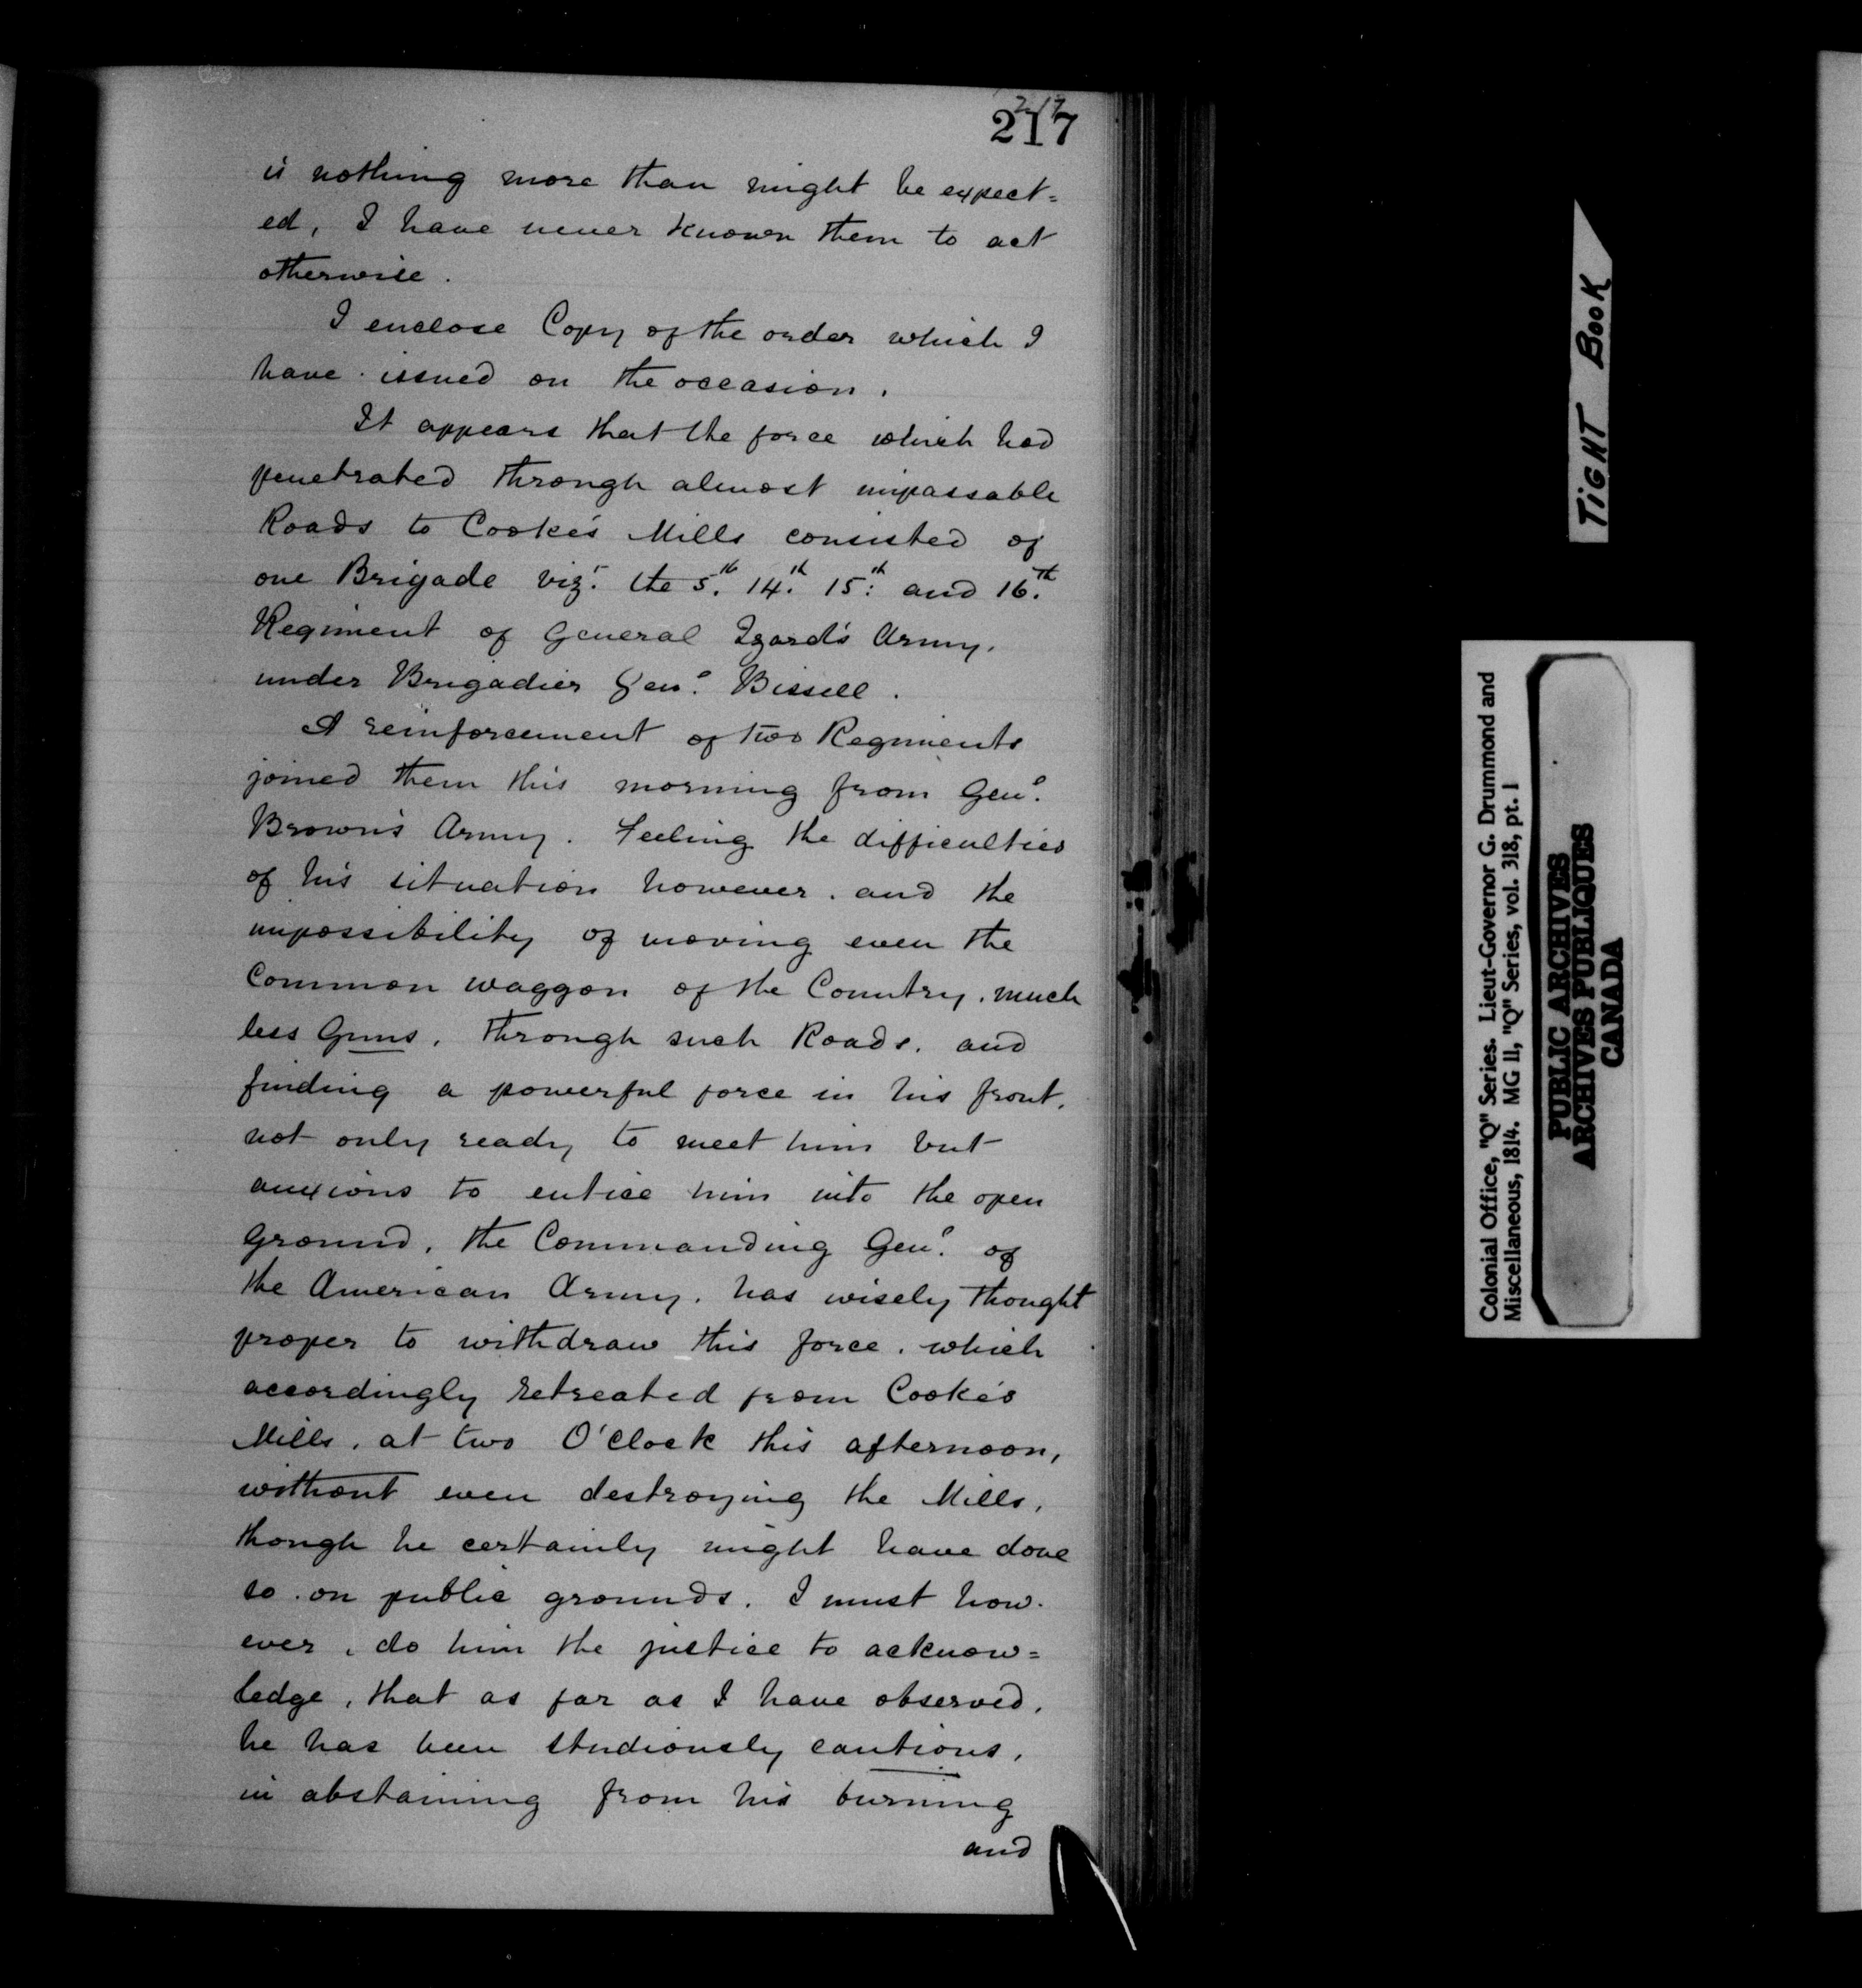 217
217
is nothing more than might be expect=
ed, I have never known them to act
otherwise.
I enclose Copy of the order which I
have issued on the occasion.
It appears that the force which had
penetrated through almost impassable
Roads to Cooke's Mills consisted of
one Brigade vizt. the 5.th 14.th 15:th and 16.th
Regiment of General Izard's Army.
under Brigadier Genl. Bissell.
A reinforcement of two Regiments
joined them this morning from Genl.
Brown's Army. Feeling the difficulties
of his situation however. and the
impossibility of moving even the
Common waggon of the Country. much
less Guns, through such Roads. and
finding a powerful force in his front.
not only ready to meet him but
anxious to entice him into the open
ground, the Commanding Genl. of
the American Army. has wisely thought
proper to withdraw this force. which
accordingly retreated from Cooke's
Mills, at two O'Clock this afternoon,
without even destroying the Mills,
though he certainly might have done
so. on public grounds. I must how-
ever, do him the justice to acknow=
ledge, that as far as I have observed,
he has been studiously cautious,
in abstaining from his burning
and
TIGHT BOOK
Colonial Office, "Q" Series. Lieut-Governor G. Drummond and
Miscellaneous, 1814. MG 11, "Q" Series, vol. 318, pt. 1
PUBLIC ARCHIVES
ARCHIVES PUBLIQUES
CANADA